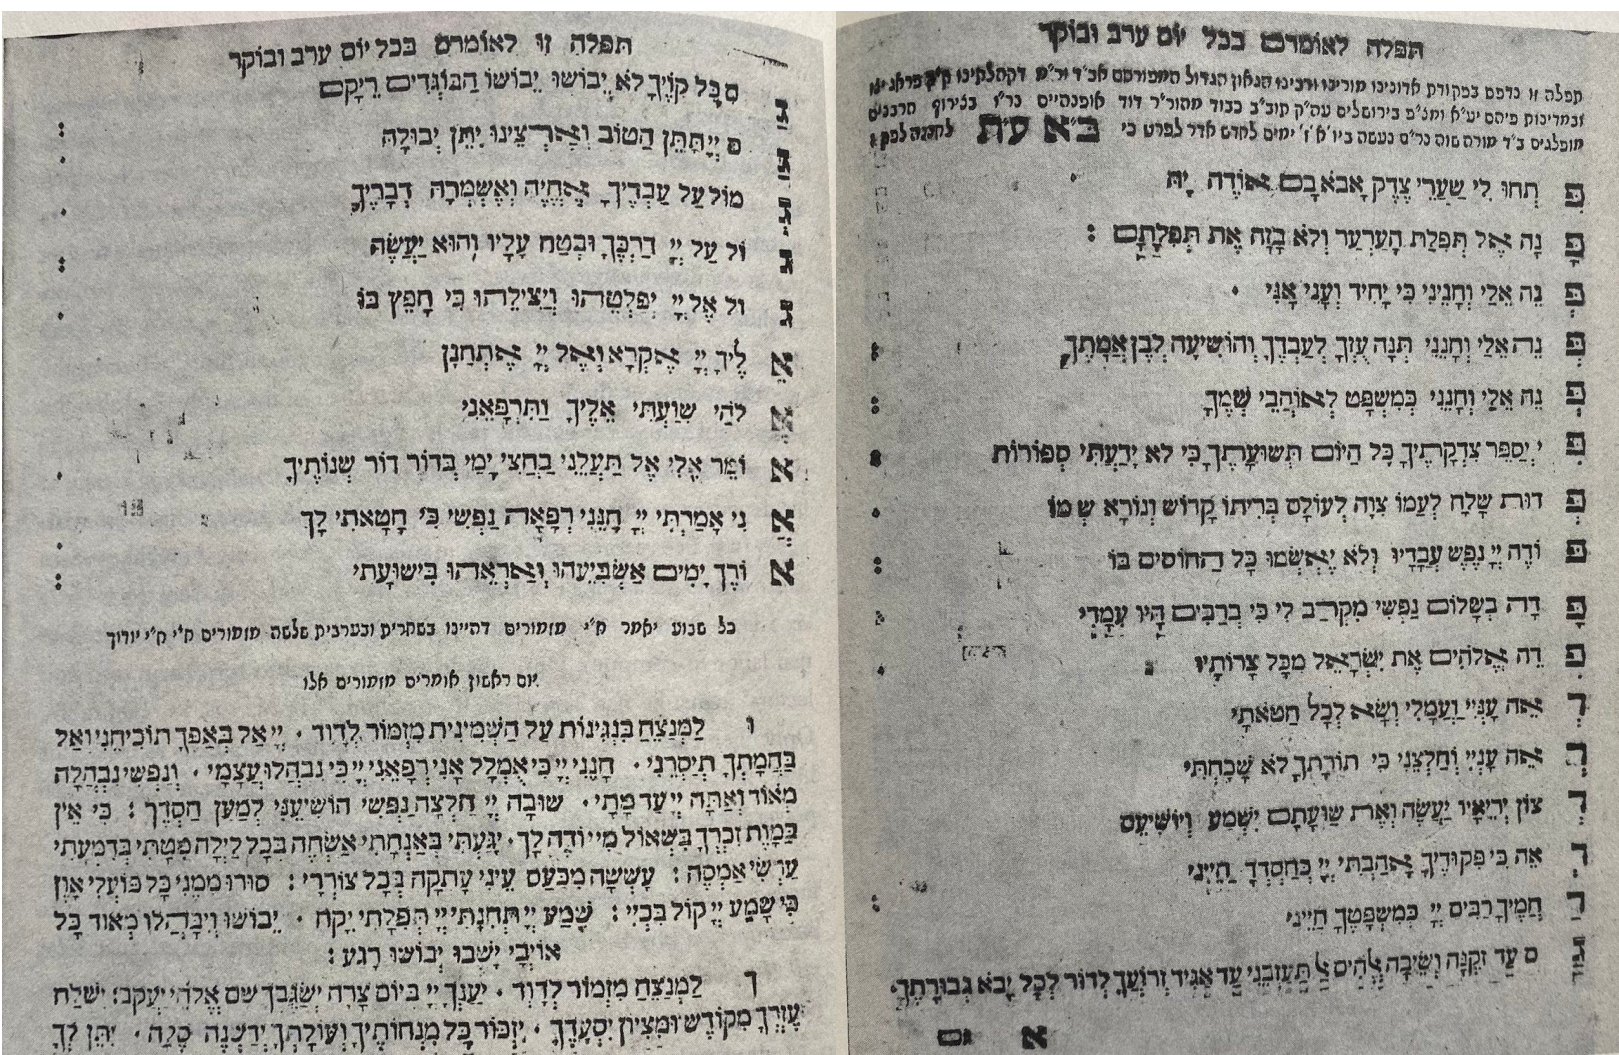 תפלה לאומרם בכל יום ערב ובוקר
תפלה זו נדפס בפקודת אדונינו מורינו ורבינו הגאון הגדול המפורסם אב״ד ור״מ דקהלתינו ק״ק פראג
ובמדינות פיהם יע״א ומנ״פ בירושלים עה״ק תוב״ב כבוד מהור״ר דוד אופנהיים נר״ו בצירוף הרבנים
מופלגים ב״ד מורה שוה נר״ם נעשה ביו׳ א׳ ז׳ ימים לחדש אדר לפרט כי ב״א ע״ת לחננה לפ״ק
פ תחו לי שַעֲרֵי צֶדֶק אָבֹא בָם אוֹדֶה יָהּ
פָּ נָה אֶל תְּפִלַּת הָעַרְעָר וְלֹא בָזָה אֶת תְּפִלָּתָם :
פְּ נֵה אֵלַי וְחָנֵּנִי כִּי יָחִיד וְעָנִי אָנִי ·
פְּ נֵה אֵלַי וְחָנֵּנִי תְּנָה עֻזְּךָ לְעַבְדֶּךָ וְהוֹשִׁיעָה לְבֶן אֲמָתֶךָ :
פְּ נֵה אֵלַי וְחָנֵּנִי כְּמִשְׁפָּט לְאוֹהֲבֵי שְׁמֶךָ :
פִּ י יְסַפֵּר צִדְקָתֶיךָ כָּל הַיּוֹם תְּשׁוּעָתֶךָ כִּי לֹא יָדַעְתִּי סְפוֹרוֹת
פְּ דוּת שָׁלַח לְעַמּוֹ צִוָּה לְעוֹלָם בְּרִיתוֹ קָדוֹשׁ וְנוֹרָא שְׁמוֹ
פּ וֹדֶה יְיָ נֶפֶשׁ עֲבָדָיו וְלֹא יֶאְשְׁמוּ כָּל הַחוֹסִים בּוֹ :
פָּ דָה בְשָׁלוֹם נַפְשִׁי מִקְּרָב לִי כִּי בְרַבִּים הָיוּ עִמָּדִי
פְּ דֵה אֱלֹהִים אֶת יִשְׂרָאֵל מִכָּל צָרוֹתָיו
רְ אֵה עָנְיִי וַעֲמָלִי וְשָׂא לְכָל חַטֹּאתָי
רְ אֵה עָנְיִי וְחַלְּצֵנִי כִּי תוֹרָתְךָ לֹא שָׁכָחְתִּי
רְ צוֹן יְרֵיאָיו יַעֲשֶׂה וְאֶת שַׁוְעָתָם יִשְׁמַע וְיוֹשִׁיעֵם
רְ אֵה כִּי פִקּוּדֶיךָ אָהַבְתִּי יְיָ כְּחַסְדְּךָ חַיֵּינִי
רַ חֲמֶיךָ רַבִּים יְיָ כְּמִשְׁפָּטֶךָ חַיֵּינִי :
גַּ ם עַד זִקְנָה וְשֵׂיבָה אֱלֹהִים אַל תַּעַזְבֵנִי עַד אַגִּיד זְרוֹעֲךָ לְדוֹר לְכָל יָבֹא גְּבוּרָתֶךָ·
א גם
תפלה זו לאומרם בכל יום ערב ובוקר
גַּ ם כָּל קוֶֹיךָ לֹא יֵבוֹשׁוּ יֵבוֹשׁוּ הַבּוֹגְדִים רֵיקָם
גַּ ם יְיָ יִתֵּן הַטּוֹב וְאַרְצֵינוּ יִתֵּן יְבוּלָהּ :
גְּ מוֹל עַל עַבְדֶּיךָ אֶחֱיֶה וְאֶשְׁמְרָה דְבָרֶיךָ
ג וֹל עַל יְיָ דַּרְכֶּךָ וּבְטַח עָלָיו וְהוּא יַעֲשֶׂה :
ג וֹל אֶל יְיָ יְפַלְטֵהוּ וְיַצִּילֵהוּ כִּי חָפֵץ בּוֹ
אֵ לֶיךָ יְיָ אֶקְרָא וְאֶל יְיָ אֶתְחַנָּן
אֱ לֹהַי שִׁוַּעְתִּי אֵלֶיךָ וַתִּרְפָּאֵנִי
א וֹמַר אֵלִי אַל תַּעֲלֵנִי בַּחֲצִי יָמַי בְּדוֹר דּוֹר שְׁנוֹתֶיךָ
אֲ נִי אָמַרְתִּי יְיָ חָנֵּנִי רְפָאָה נַפְשִׁי כִּי חָטָאתִי לָךְ
א וֹרֶךְ יָמִים אַשְׂבִּיעֵהוּ וְאַרְאֵהוּ בִּישׁוּעָתִי :
כל שבוע יאמר ח״י מזמורים דהיינו בשחרית ובערבית שלשה מזמורים ח״י ח״י יודוך
יום ראשון אומרים מזמורים אלו
ו לַמְנַצֵּחַ בִּנְגִינוֹת עַל הַשְּׁמִינִית מִזְמוֹר לְדָוִד · יְיָ אַל בְּאַפְּךָ תוֹכִיחֵנִי וְאַל
בַּחֲמָתְךָ תְיַסְּרֵנִי · חָנֵּנִי יְיָ כִּי אֻמְלַל אָנִי רְפָאֵנִי יְיָ כִּי נִבְהֲלוּ עֲצָמָי · וְנַפְשִׁי נִבְהֲלָה
מְאוֹד וְאַתָּה יְיָ עַד מָתָי · שׁוּבָה יְיָ חַלְּצָה נַפְשִׁי הוֹשִׁיעֵנִי לְמַעַן חַסְדֶּךָ : כִּי אֵין
בַּמָּוֶת זִכְרֶךָ בִּשְׁאוֹל מִי יוֹדֶה לָּךְ · יָגַעְתִּי בְּאַנְחָתִי אַשְׂחֶה בְכָל לַיְלָה מִטָּתִי בְּדִמְעָתִי
עַרְשִׂי אַמְסֶה : עָשְׁשָׁה מִכַּעַס עֵינִי עָתְקָה בְּכָל צוֹרְרָי : סוּרוּ מִמֶּנִּי כָּל פּוֹעֲלֵי אָוֶן
כִּי שָׁמַע יְיָ קוֹל בִּכְיִי : שָׁמַע יְיָ תְּחִנָּתִי יְיָ תְּפִלָּתִי יִקָּח · יֵבוֹשׁוּ וְיִבָּהֲלוּ מְאוֹד כָּל
אוֹיְבָי יָשֻׁבוּ יֵבוֹשׁוּ רָגַע :
ך לַמְנַצֵּחַ מִזְמוֹר לְדָוִד · יַעַנְךָ יְיָ בְּיוֹם צָרָה יְשַׂגֶּבְךָ שֵׁם אֱלֹהֵי יַעֲקֹב: יִשְׁלַח
עֶזְרְךָ מִקּוֹדֶשׁ וּמִצִּיּוֹן יִסְעָדֶךָּ · יִזְכּוֹר כָּל מִנְחוֹתֶיךָ וְעוֹלָתְךָ יְדַשְּׁנֶה סֶלָה · יִתֶּן לְךָ